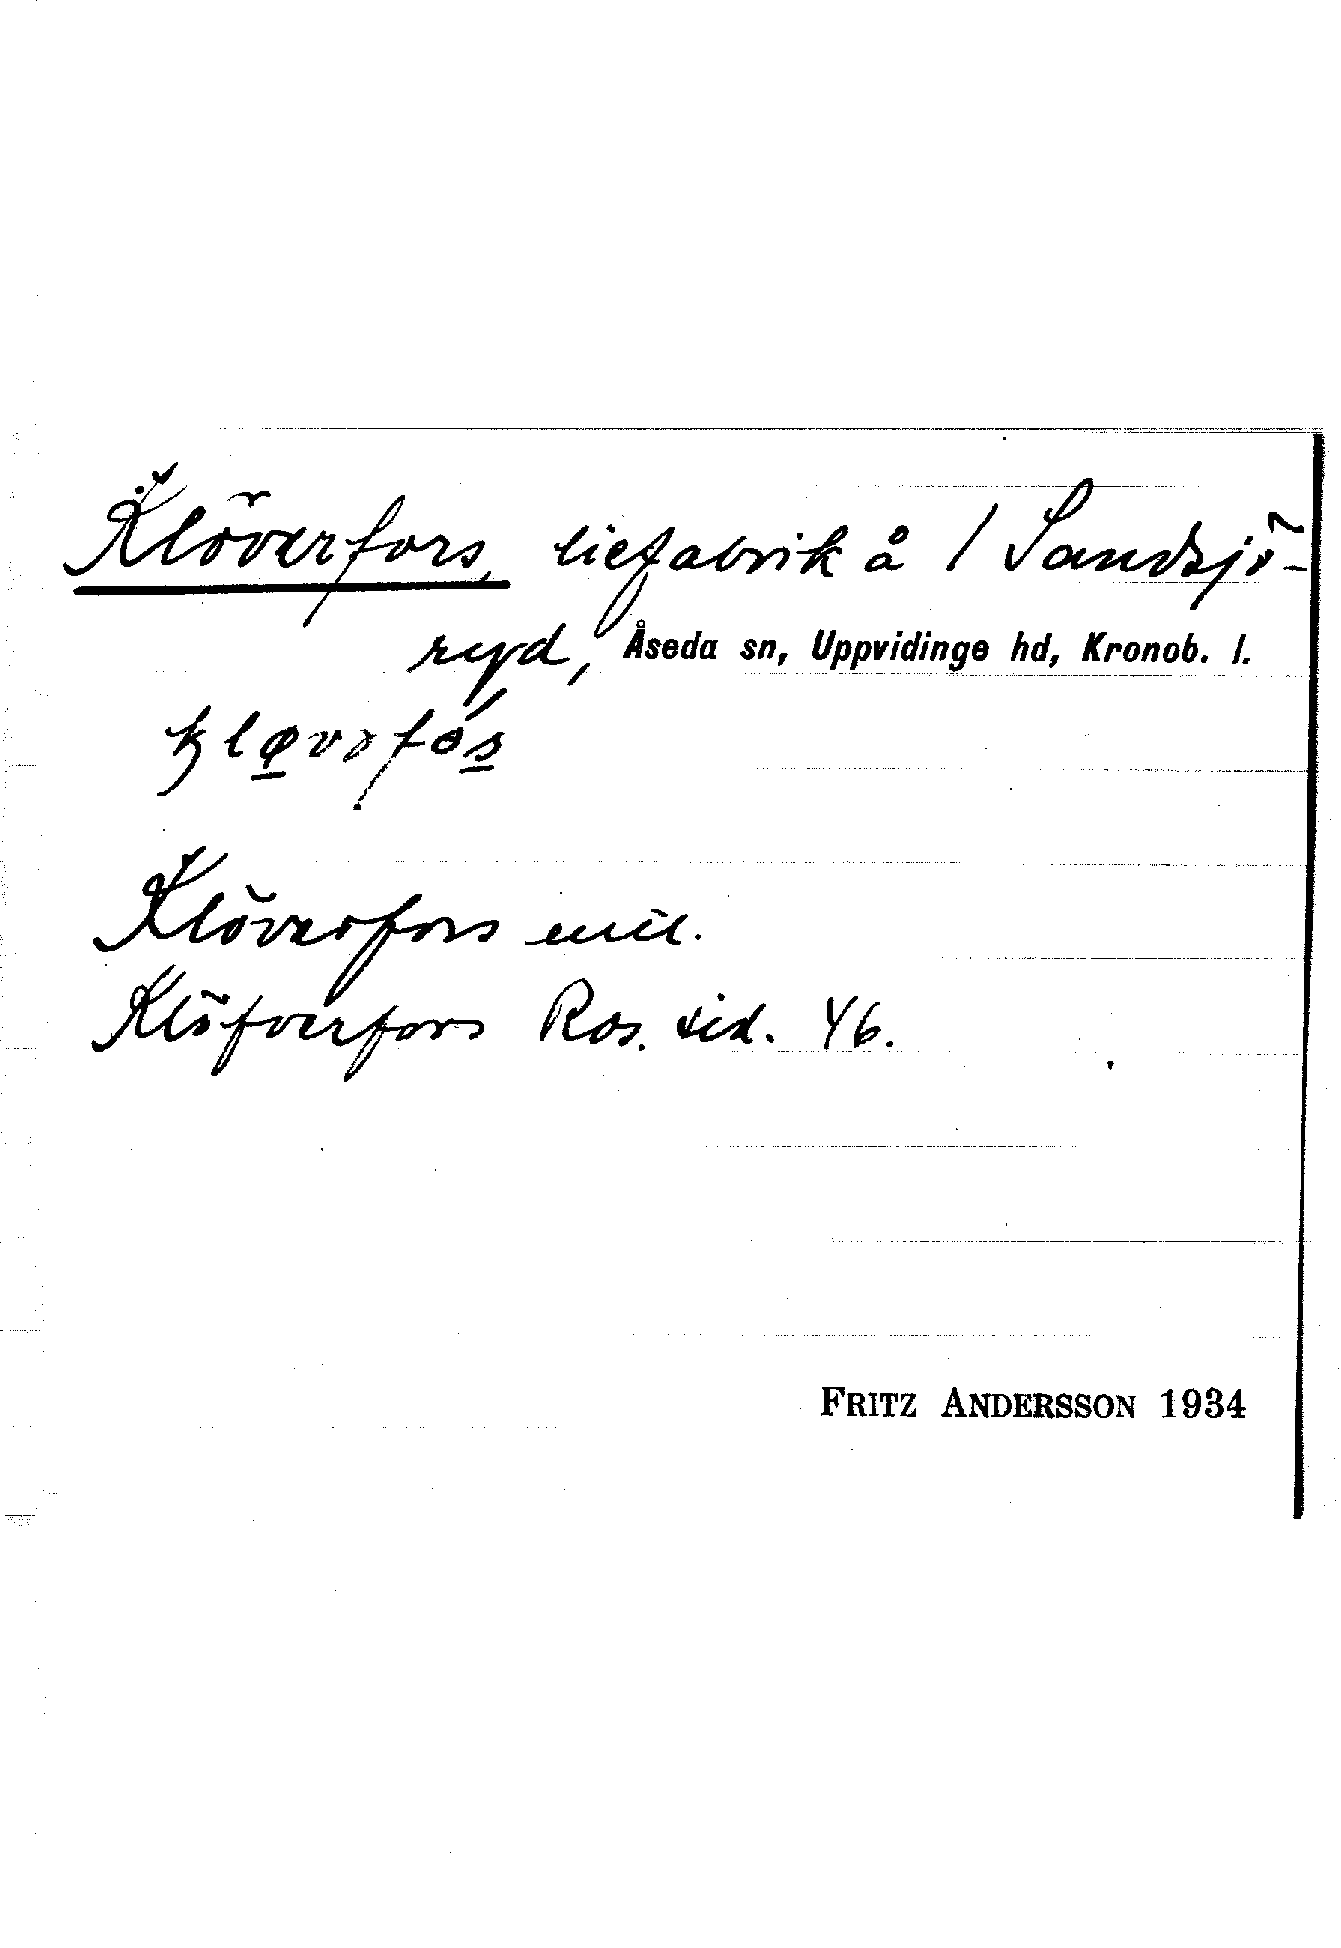 Klöverfors, liefabrik å / Sandsjö-
ryd, Åseda sn, Uppvidinge hd, Kronob. l.
Klöverfors
Klöfverfors Ros. sid. 46.
FRITZ ANDERSSON 1934